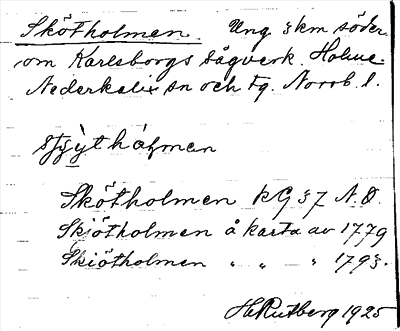 Skötholmen. Ung. 3 km söder
om Karlsborgs sågverk. Holme.
Nederkalix sn och tg. Norrb. l.
Skötholmen kG 37 N.O.
Skiötholmen å karta av 1779
Skiötholmen " " " 1793.
H. Rutberg 1925